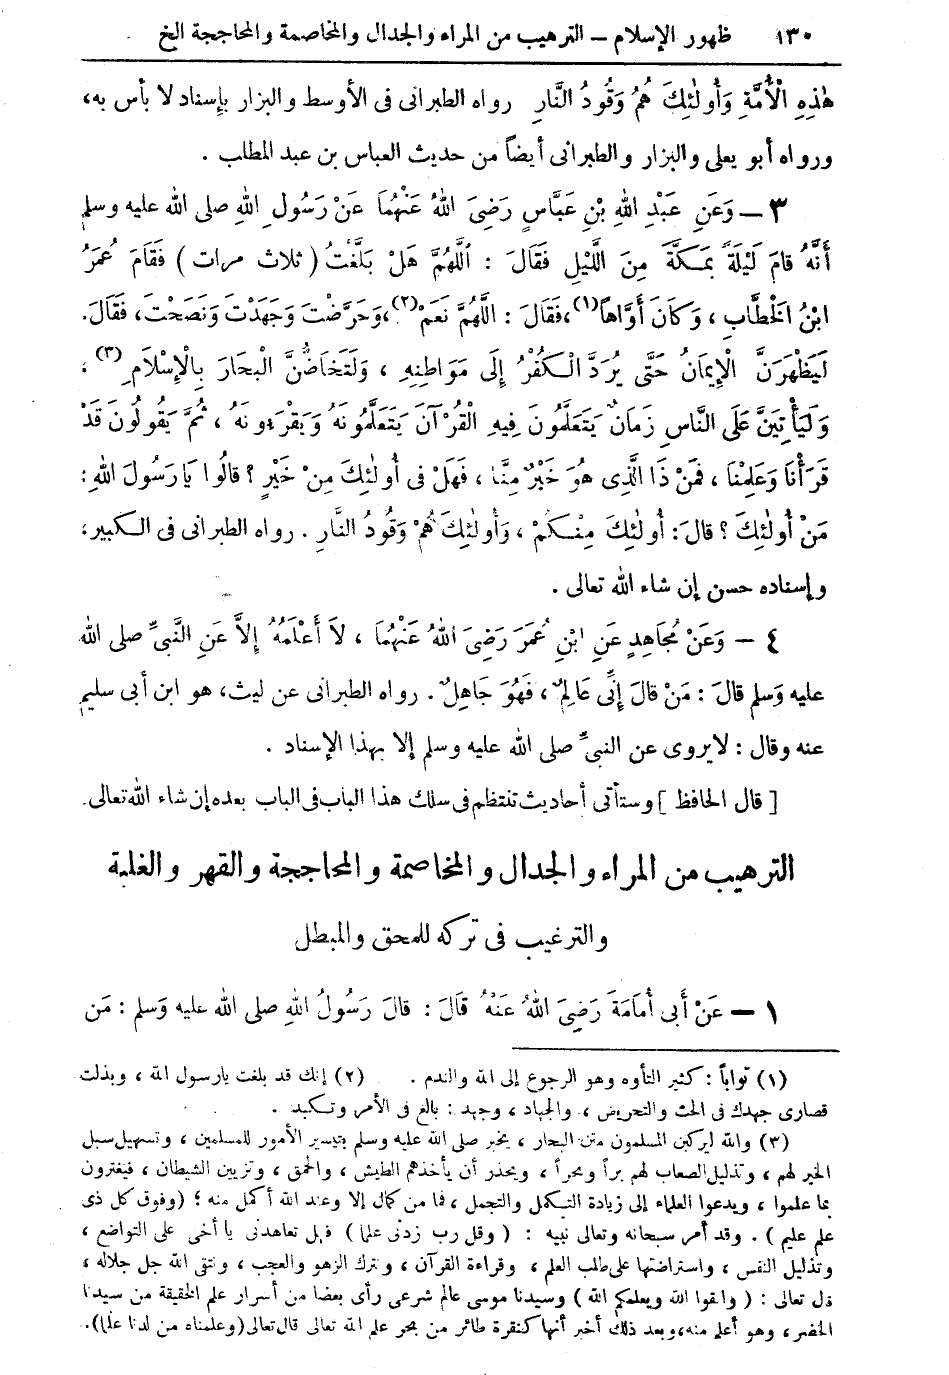 ١٣٠ ظهور الإسلام – الترهيب من المراء والجدال والمخاصمة والمحاججة الخ
هٰذِهِ الْأُمَّةِ وَأُولٰئِكَ هُمْ وَقُودُ النَّارِ رواه الطبرانى فى الأوسط والبزار بإسناد لا بأس به،
ورواه أبو يعلى والبزار والطبرانى أيضاً من حديث العباس بن عبد المطلب .
٣ – وَعَنِ عَبْدِ اللهِ بْنِ عَبَّاسٍ رَضِىَ اللهُ عَنْهُمَا عَنْ رَسُولِ اللهِ صلى الله عليه وسلم
أَنَّهُ قَامَ لَيْلَةً بِمَكَّةَ مِنَ اللَّيْلِ فَقَالَ : اَللَّهُمَّ هَلْ بَلَّغْتُ (ثلاث مرات) فَقَامَ عُمَرُ
ابْنُ الْخَطَّابِ ، وَكَانَ أَوَّاهاً(١)، فَقَالَ : اللَّهُمَّ نَعَمْ(٢)، وَحَرَّضْتَ وَجَهَدْتَ وَنَصَحْتَ، فَقَالَ.
لَيَظْهَرَنَّ الْإِيمَانُ حَتَّى يُرَدَّ الْكُفْرُ إِلَى مَوَاطِنِهِ ، وَلَتُخَاضَنَّ الْبِحَارَ بِالْإِسْلَامِ(٣) ،
وَلَيَأْتِيَنَّ عَلَى النَّاسِ زَمَانٌ يَتَعَلَّمُونَ فِيهِ الْقُرْآنَ يَتَعَلَّمُونَهُ وَيَقْرَءُونَهُ ، ثُمَّ يَقُولُونَ قَدْ
قَرَأْنَا وَعَلِمْنَا ، فَمَنْ ذَا الَّذِى هُوَ خَيْرٌ مِنَّا ، فَهَلْ فِى أُولٰئِكَ مِنْ خَيْرٍ ؟ قَالُوا يَا رَسُولَ اللهِ :
مَنْ أُولٰئِكَ ؟ قَالَ : أُولٰئِكَ مِنْكُمْ ، وَأُولٰئِكَ هُمْ وَقُودُ النَّارِ . رواه الطبرانى فى الكبير،
وإسناده حسن إن شاء الله تعالى .
٤ – وَعَنْ مُجَاهِدٍ عَنِ ابْنِ عُمَرَ رَضِىَ اللهُ عَنْهُمَا ، لَا أَعْلَمُهُ إِلاَّ عَنِ النَّبِىِّ صلى الله
عليه وَسلم قَالَ : مَنْ قَالَ إِنِّى عَالِمٌ ، فَهُوَ جَاهِلٌ . رواه الطبرانى عن ليث، هو ابن أبى سليم
عنه وقال : لا يروى عن النبىِّ صلى الله عليه وسلم إلا بهذا الإسناد .
[ قال الحافظ ] وستأتى أحاديث تنتظم فى سلك هذا الباب فى الباب بعده إن شاء الله تعالى.
الترهيب من المراء والجدال والمخاصمة والمحاججة والقهر والغلبة
والترغيب فى تركه للمحق والمبطل
١ – عَنْ أَبِى أُمَامَةَ رَضِىَ اللهُ عَنْهُ قَالَ : قَالَ رَسُولُ اللهِ صلى الله عليه وسلم : مَن
(١) تواباً : كثير التأوه وهو الرجوع إلى الله والندم . (٢) إنك قد بلغت يارسول الله ، وبذلت
قصارى جهدك فى الحث والتحريض ، والجهاد ، وجهد : بالغ فى الأمر وتكبد .
(٣) والله ليركبن المسلمون متن البحار ، يخبر صلى الله عليه وسلم بتيسير الأمور للمسلمين ، وتسهيل سبل
الخير لهم ، وتذليل الصعاب لهم براً وبحراً ، ويحذر أن يأخذهم الطيش ، والحمق ، وتزيين الشيطان ، فيغترون
بما علموا ، ويدعوا العلماء إلى زيادة التكمل والتجمل ، فما من كمال إلا وعند الله أكمل منه ؛ (وفوق كل ذى
علم عليم ) . وقد أمر سبحانه وتعالى نبيه : ( وقل رب زدنى علما ) فهل تعاهدنى يا أخى على التواضع ،
وتذليل النفس ، واستراضتها على طلب العلم ، وقراءة القرآن ، وترك الزهو والعجب ، وتتقى الله جل جلاله ،
قال تعالى : ( واتقوا الله ويعلمكم الله ) وسيدنا موسى عالم شرعى رأى بعضا من أسرار علم الحقيقة من سيدنا
الخضر ، وهو أعلم منه، وبعد ذلك أخبر أنها كنقرة طائر من بحر علم الله تعالى قال تعالى (وعلمناه من لدنا علما).